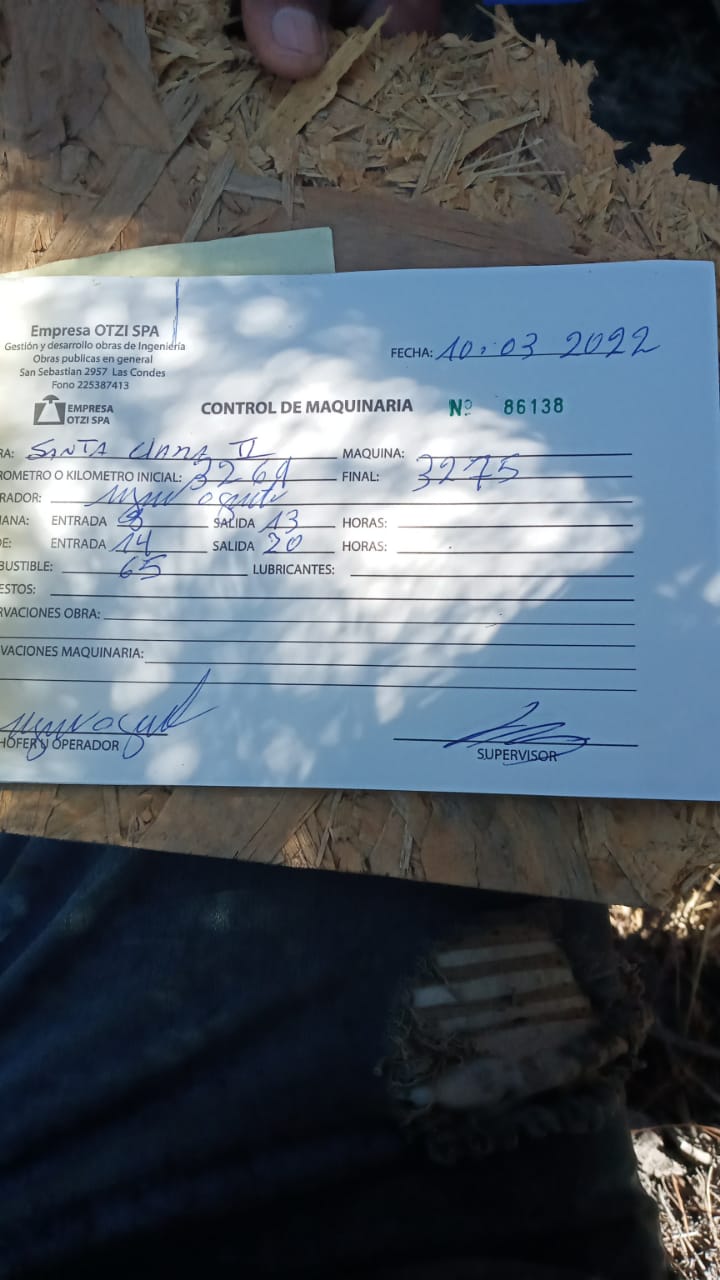 Empresa OTZI SPA
Gestión y desarrollo obras de Ingeniería
Obras publicas en general
San Sebastian 2957 Las Condes
Fono 225387413
FECHA: 10-03 2022
EMPRESA
OTZI SPA
CONTROL DE MAQUINARIA Nº 86138
RA: SANTA CLARA II MAQUINA:
ROMETRO O KILOMETRO INICIAL: 3269 FINAL: 3275
RADOR:
ANA: ENTRADA 8 SALIDA 13 HORAS:
DE: ENTRADA 14 SALIDA 20 HORAS:
BUSTIBLE: 65 LUBRICANTES:
ESTOS:
RVACIONES OBRA:
VACIONES MAQUINARIA:
HOFER U OPERADOR SUPERVISOR